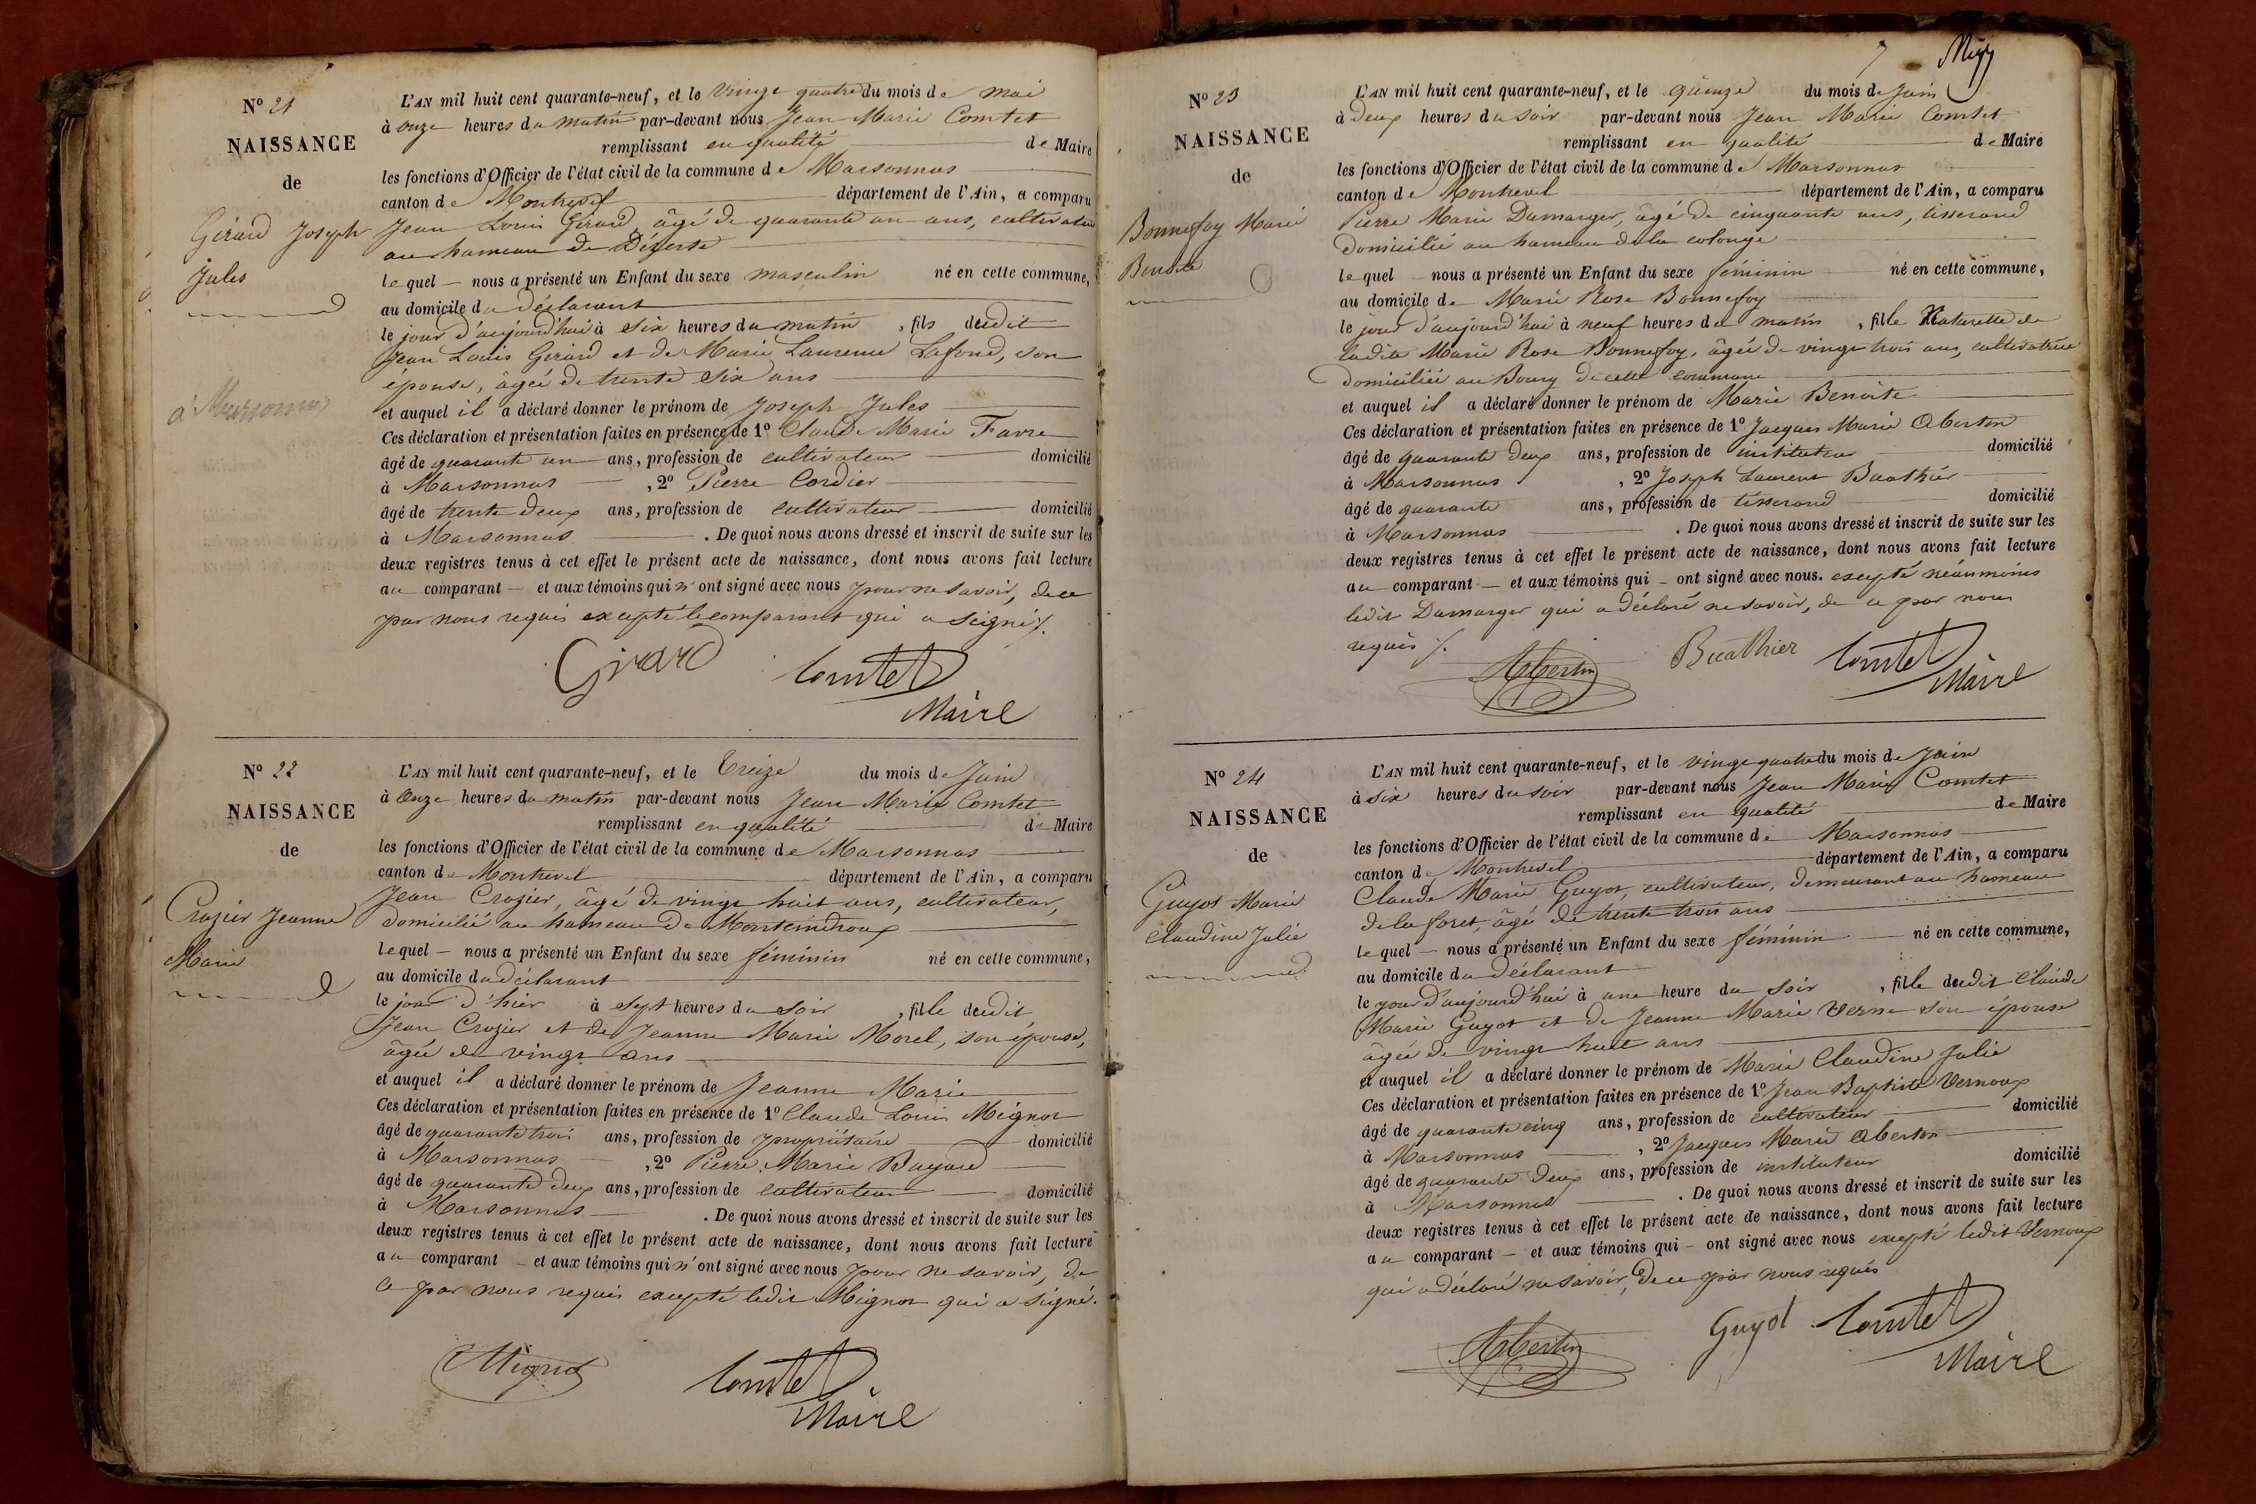 Nº 21
NAISSANCE
de
Girard Joseph
Jules
à Marsonnas
L'AN mil huit cent quarante-neuf, et le vingt quatre du mois de mai
à onze heures du matin par-devant nous Jean Marie Comtet
remplissant en qualité de Maire
les fonctions d'Officier de l'état civil de la commune de Marsonnas
canton de Montrevel département de l'Ain, a comparu
Jean Louis Girard, âgé de quarante un ans, cultivateur
au hameau de
lequel nous a présenté un Enfant du sexe masculin né en cette commune,
au domicile du déclarant
le jour d'aujourd'hui à six heures du matin, fils dudit
Jean Louis Girard et de Marie Laurence Lafond, son
épouse, âgée de trente six ans
et auquel il a déclaré donner le prénom de Joseph Jules
Ces déclaration et présentation faites en présence de 1º Claude Marie Favre
âgé de quarante un ans, profession de cultivateur domicilié
à Marsonnas, 2º Pierre Cordier
âgé de trente deux ans, profession de cultivateur domicilié
à Marsonnas. De quoi nous avons dressé et inscrit de suite sur les
deux registres tenus à cet effet le présent acte de naissance, dont nous avons fait lecture
au comparant et aux témoins qui n'ont signé avec nous pour ne savoir, de ce
par nous requis excepté le comparant qui a signé ./.
Girard Comtet
Maire
Nº 22
NAISSANCE
de
Crozier Jeanne
Marie
L'AN mil huit cent quarante-neuf, et le treize du mois de Juin
à onze heures du matin par-devant nous Jean Marie Comtet
remplissant en qualité de Maire
les fonctions d'Officier de l'état civil de la commune de Marsonnas
canton de Montrevel département de l'Ain, a comparu
Jean Crozier, âgé de vingt huit ans, cultivateur,
domicilié au hameau de Monteindroux
lequel nous a présenté un Enfant du sexe féminin né en cette commune,
au domicile du déclarant
le jour d'hier à sept heures du soir, fille dudit
Jean Crozier et de Jeanne Marie Morel, son épouse,
âgée de vingt ans
et auquel il a déclaré donner le prénom de Jeanne Marie
Ces déclaration et présentation faites en présence de 1º Claude Louis Mignot
âgé de quarante trois ans, profession de propriétaire domicilié
à Marsonnas, 2º Pierre Marie Buyard
âgé de quarante deux ans, profession de cultivateur domicilié
à Marsonnas. De quoi nous avons dressé et inscrit de suite sur les
deux registres tenus à cet effet le présent acte de naissance, dont nous avons fait lecture
au comparant et aux témoins qui n'ont signé avec nous pour ne savoir, de
ce par nous requis excepté ledit Mignot qui a signé.
Mignot Comtet
Maire
7
Nº 23
NAISSANCE
de
Bonnefoy Marie
Benoite
L'AN mil huit cent quarante-neuf, et le quinze du mois de Juin
à deux heures du soir par-devant nous Jean Marie Comtet
remplissant en qualité de Maire
les fonctions d'Officier de l'état civil de la commune de Marsonnas
canton de Montrevel département de l'Ain, a comparu
Pierre Marie Damarger, âgé de cinquante ans, tisserand
domicilié au hameau de la colonge
lequel nous a présenté un Enfant du sexe féminin né en cette commune,
au domicile de Marie Rose Bonnefoy
le jour d'aujourd'hui à neuf heures du matin, fille Naturelle de
ladite Marie Rose Bonnefoy, âgée de vingt trois ans, cultivatrice
domiciliée au Bourg de cette commune
et auquel il a déclaré donner le prénom de Marie Benoite
Ces déclaration et présentation faites en présence de 1º Jacques Marie Abertin
âgé de quarante deux ans, profession de instituteur domicilié
à Marsonnas, 2º Joseph Laurent Buathier
âgé de quarante ans, profession de tisserand domicilié
à Marsonnas. De quoi nous avons dressé et inscrit de suite sur les
deux registres tenus à cet effet le présent acte de naissance, dont nous avons fait lecture
au comparant et aux témoins qui ont signé avec nous. excepté néanmoins
ledit Damarger qui a déclaré ne savoir, de ce par nous
requis ./.
Abertin Buathier Comtet
Maire
Nº 24
NAISSANCE
de
Guyot Marie
Claudine Julie
L'AN mil huit cent quarante-neuf, et le vingt quatre du mois de Juin
à six heures du soir par-devant nous Jean Marie Comtet
remplissant en qualité de Maire
les fonctions d'Officier de l'état civil de la commune de Marsonnas
canton de Montrevel département de l'Ain, a comparu
Claude Marie Guyot, cultivateur, demeurant au hameau
de la foret, âgé de trente trois ans
lequel nous a présenté un Enfant du sexe féminin né en cette commune,
au domicile du déclarant
le jour d'aujourd'hui à une heure du soir, fille dudit Claude
Marie Guyot et de Jeanne Marie Verne son épouse
âgée de vingt huit ans
et auquel il a déclaré donner le prénom de Marie Claudine Julie
Ces déclaration et présentation faites en présence de 1º Jean Baptiste Vernoux
âgé de quarante cinq ans, profession de cultivateur domicilié
à Marsonnas, 2º Jacques Marie Abertin
âgé de quarante deux ans, profession de instituteur domicilié
à Marsonnas. De quoi nous avons dressé et inscrit de suite sur les
deux registres tenus à cet effet le présent acte de naissance, dont nous avons fait lecture
au comparant et aux témoins qui ont signé avec nous excepté ledit Vernoux
qui a déclaré ne savoir, de ce par nous requis
Abertin Guyot Comtet
Maire